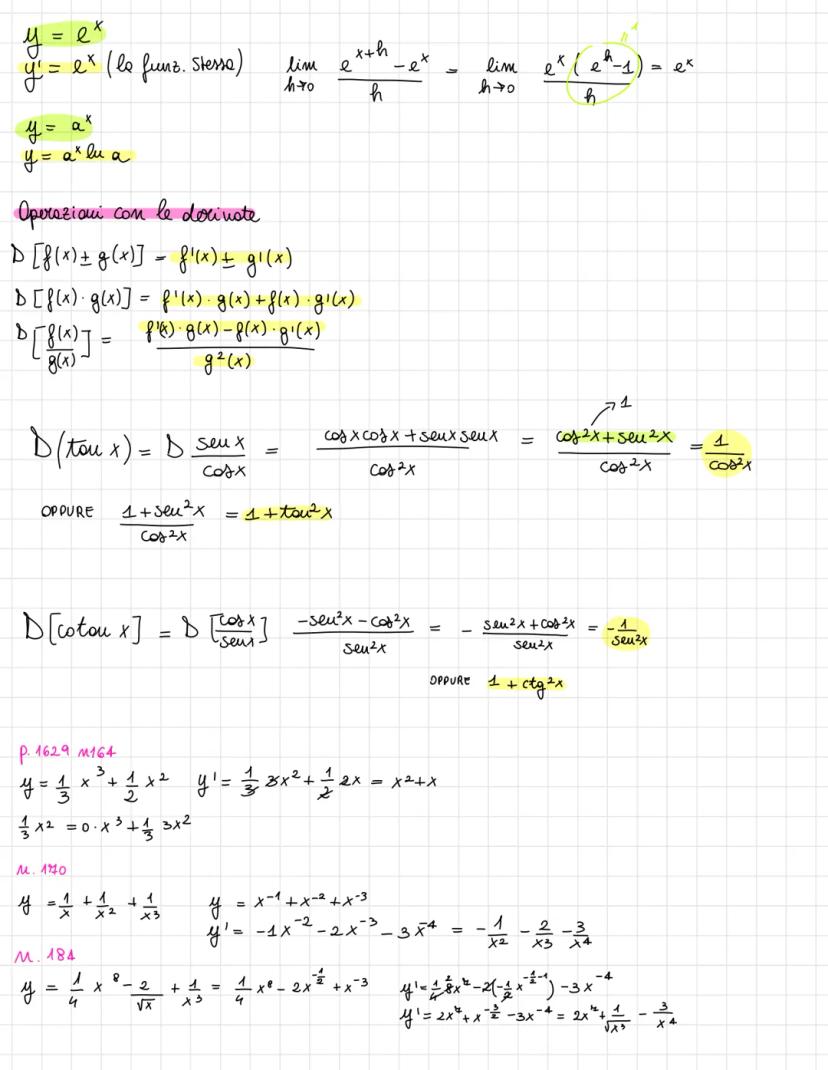 y = eˣ
y' = eˣ (la funz. stessa) lim h→0 (eˣ⁺ʰ - eˣ)/h = lim h→0 eˣ(eʰ-1)/h = eˣ
1
y = aˣ
y = aˣ ln a
Operazioni con le derivate
D [f(x) ± g(x)] = f'(x) ± g'(x)
D [f(x) · g(x)] = f'(x) · g(x) + f(x) · g'(x)
D [f(x)/g(x)] = (f'(x) · g(x) - f(x) · g'(x))/g²(x)
D(tan x) = D sen x/cos x = (cos x cos x + sen x sen x)/cos²x = (cos²x + sen²x)/cos²x = 1/cos²x
→ 1
OPPURE (1 + sen²x)/cos²x = 1 + tan²x
D[cotan x] = D [cos x/sen x] (-sen²x - cos²x)/sen²x = - (sen²x + cos²x)/sen²x = - 1/sen²x
OPPURE 1 + ctg²x
p. 1629 n164
y = 1/3 x³ + 1/2 x² y' = 1/3 3x² + 1/2 2x = x² + x
1/3 x² = 0 · x³ + 1/3 3x²
n. 170
y = 1/x + 1/x² + 1/x³ y = x⁻¹ + x⁻² + x⁻³
y' = -1x⁻² - 2x⁻³ - 3x⁻⁴ = - 1/x² - 2/x³ - 3/x⁴
n. 184
y = 1/4 x⁸ - 2/√x + 1/x³ = 1/4 x⁸ - 2x^(-1/2) + x⁻³ y' = 1/4 8 2 x⁷ - 2(-1/2 x^(-1/2-1)) - 3x⁻⁴
y' = 2x⁷ + x^(-3/2) - 3x⁻⁴ = 2x⁷ + 1/√x³ - 3/x⁴